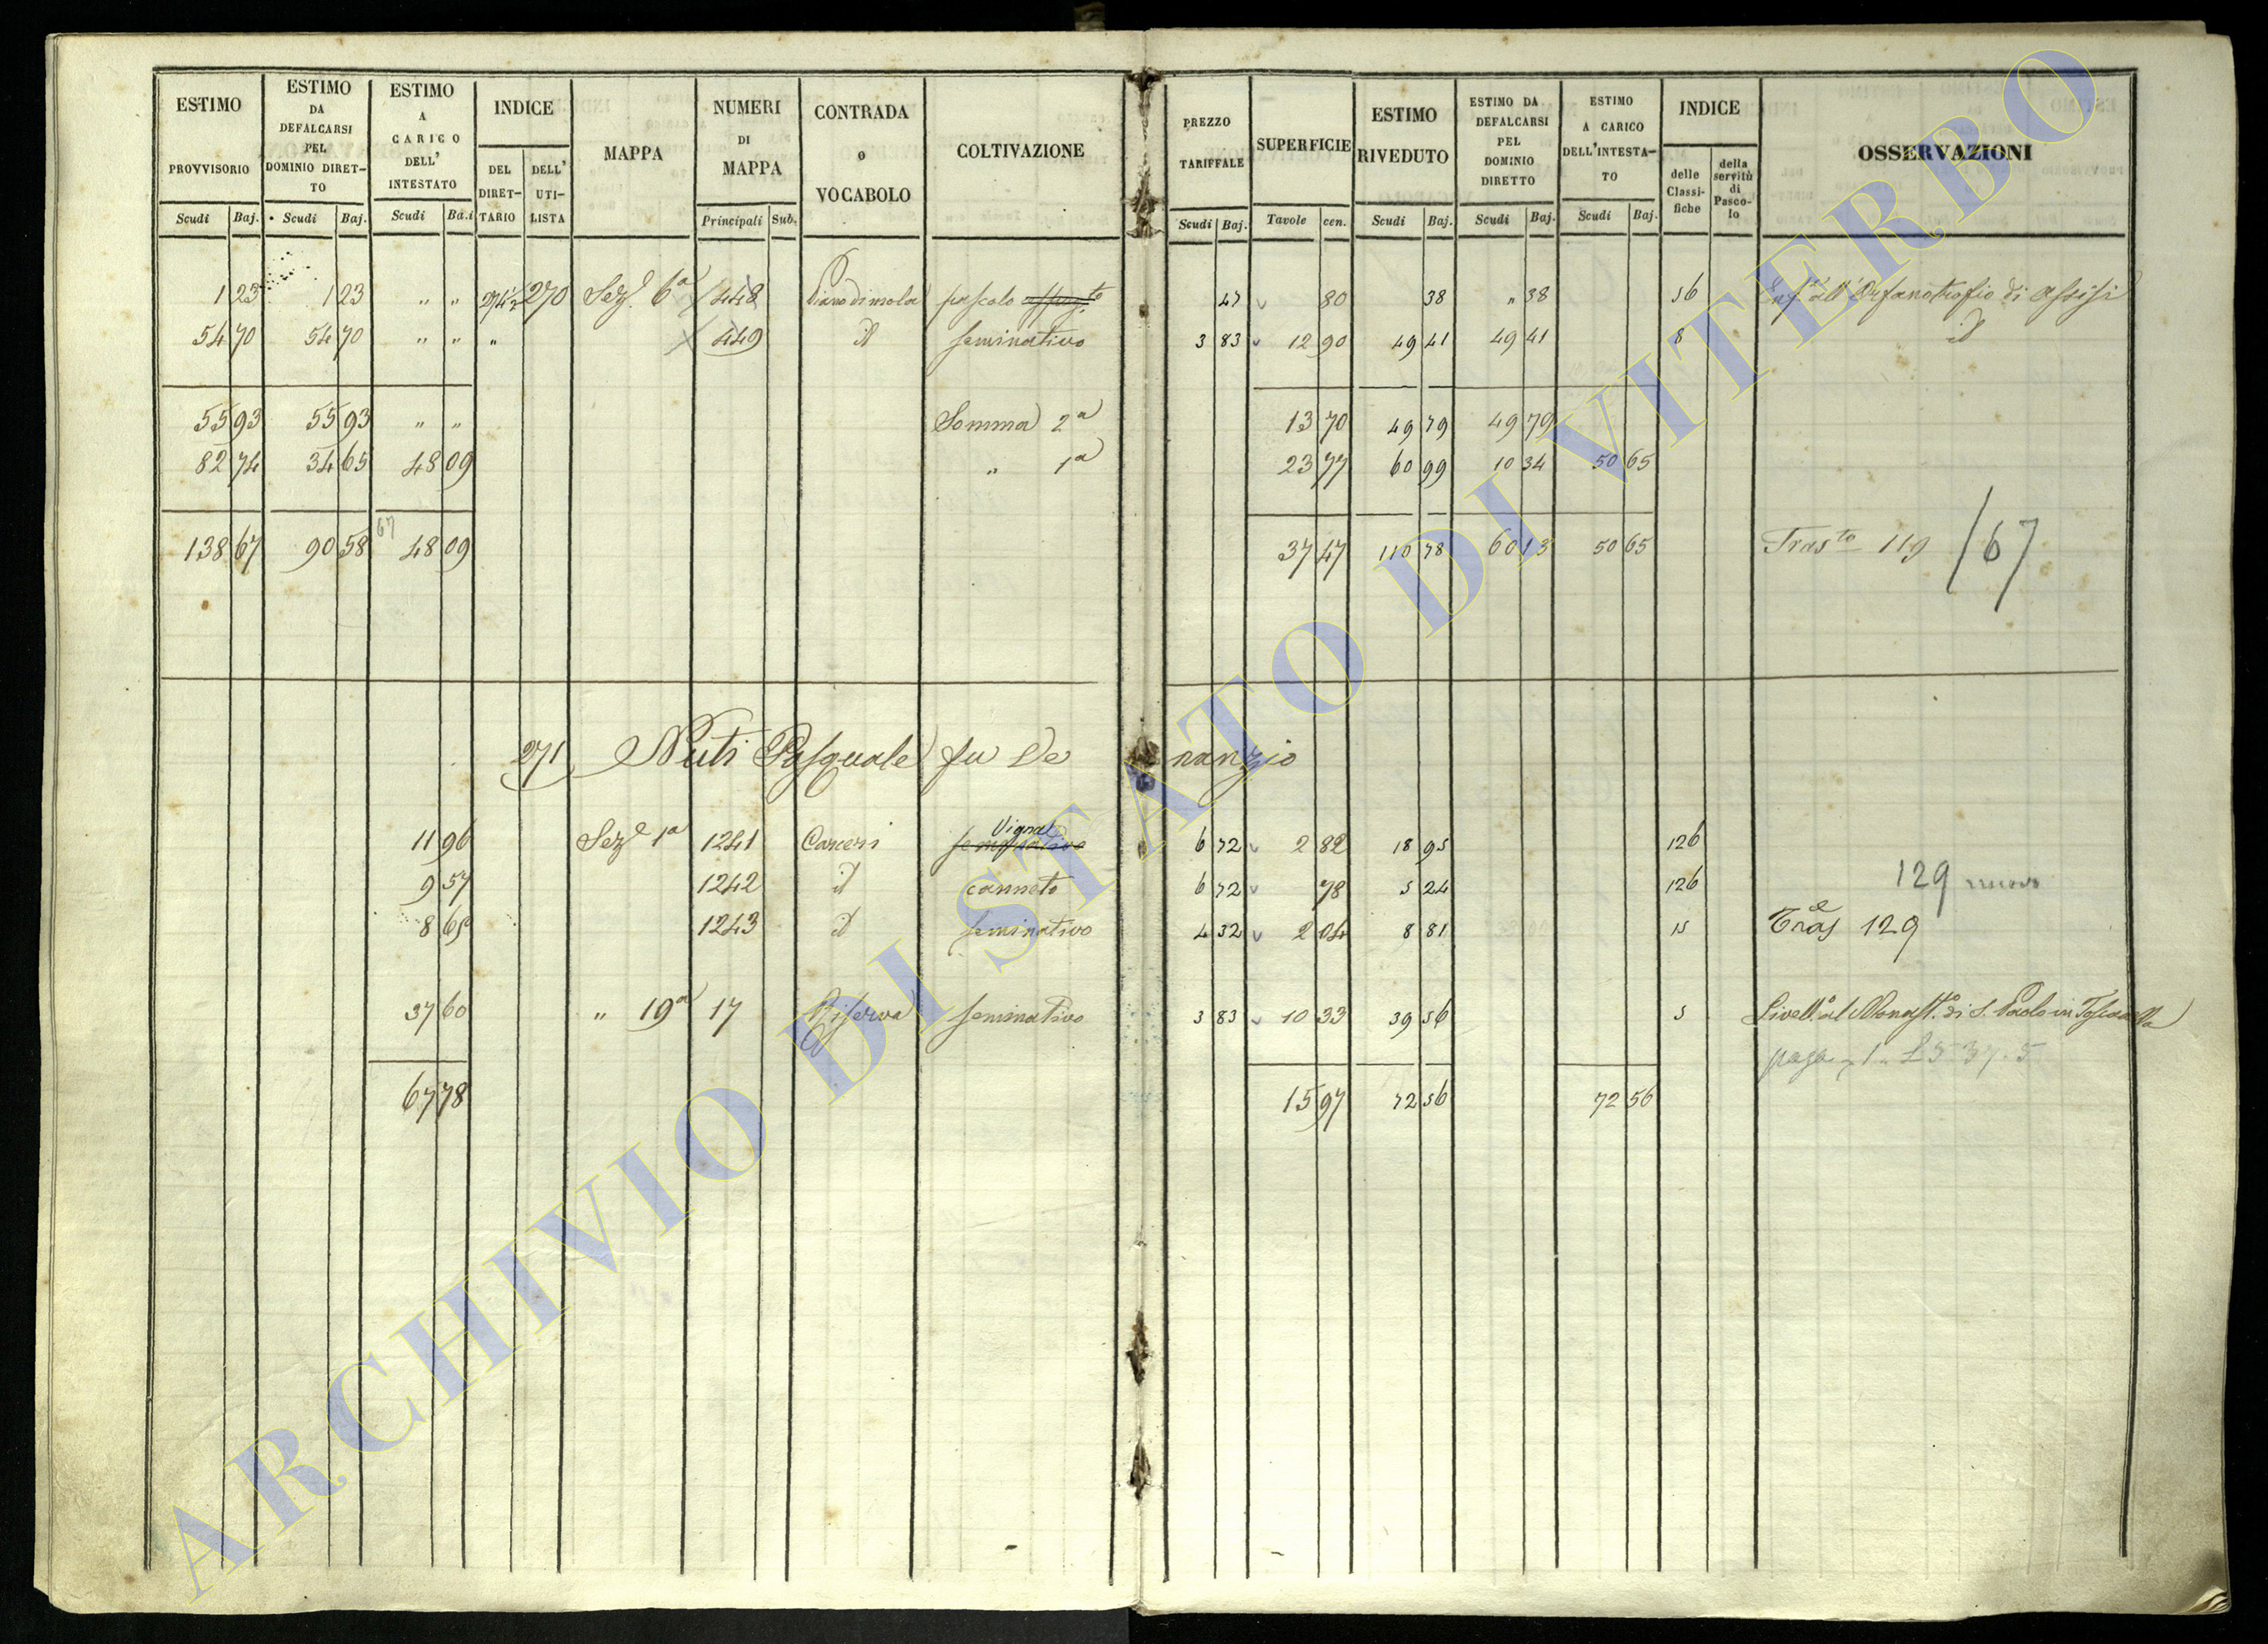 ESTIMO PROVVISORIO | ESTIMO DA DEFALCARSI PEL DOMINIO DIRET-TO | ESTIMO A CARICO DELL' INTESTATO | INDICE | MAPPA | NUMERI DI MAPPA | CONTRADA o VOCABOLO | COLTIVAZIONE | PREZZO TARIFFALE | SUPERFICIE | ESTIMO RIVEDUTO | ESTIMO DA DEFALCARSI PEL DOMINIO DIRETTO | ESTIMO A CARICO DELL'INTESTA-TO | INDICE | OSSERVAZIONI
DEL DIRET-TARIO | DELL' UTI-LISTA | delle Classi-fiche | della servitù di Pasco-lo
Scudi | Baj. | Scudi | Baj. | Scudi | Ba.i | Principali | Sub. | Scudi | Baj. | Tavole | cen. | Scudi | Baj. | Scudi | Baj. | Scudi | Baj.
1 23 | 1 23 | " " | 270 | Sez.e 6a | 448 | Piano di mola | pascolo | 47 | 80 | 38 | " 38 | 56 | all'Orfanotrofio di Assisi
54 70 | 54 70 | " " | " | 449 | id | seminativo | 3 83 | 12 90 | 49 41 | 49 41 | 8 | id
55 93 | 55 93 | " " | Somma 2a | 13 70 | 49 79 | 49 79
82 74 | 34 65 | 48 09 | " 1a | 23 77 | 60 99 | 10 34 | 50 65
138 67 | 90 58 | 67 | 48 09 | 37 47 | 110 78 | 60 13 | 50 65 | Trasto 119 | /67
271 Nuti Pasquale fu Ve nanzio
11 96 | Sez.e 1a | 1241 | Carceri | Vigna seminativo | 6 72 | 2 82 | 18 95 | 126
9 57 | 1242 | id | canneto | 6 72 | 78 | 5 24 | 126 | 129 nuovo
8 65 | 1243 | id | seminativo | 4 32 | 2 04 | 8 81 | 15 | Tras 129
37 60 | " 19a | 17 | Riserva | seminativo | 3 83 | 10 33 | 39 56 | 5 | Livell.o al Monast.o di S. Paolo in Toscanella
67 78 | 15 97 | 72 56 | 72 56
ARCHIVIO DI STATO DI VITERBO